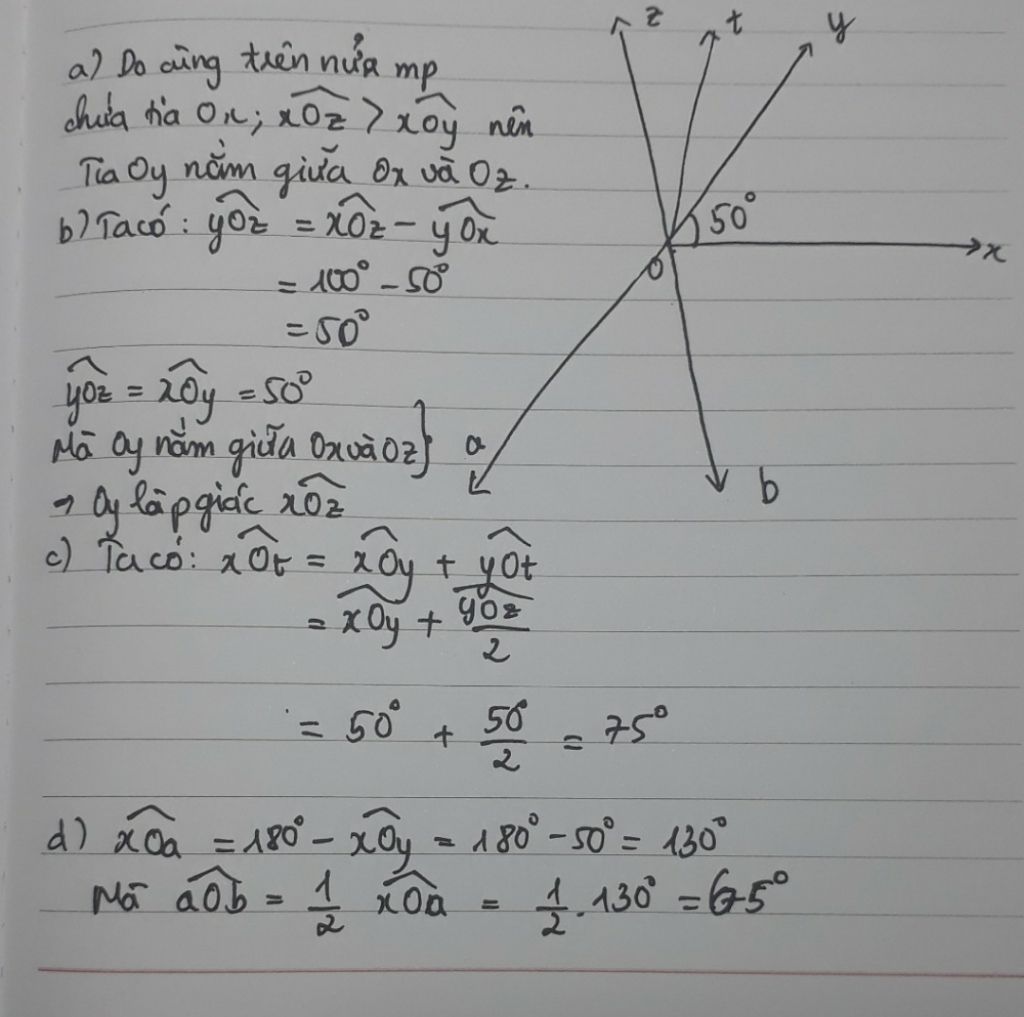 a) Do cùng trên nửa mp
chứa tia Ox; xOz > xOy nên
Tia Oy nằm giữa Ox và Oz.
b) Ta có: yOz = xOz - yOx
= 100° - 50°
= 50°
yOz = xOy = 50°
Mà Oy nằm giữa Ox và Oz}
→ Oy là p giác xOz
c) Ta có: xOt = xOy + yOt
= xOy + yOz/2
= 50° + 50°/2 = 75°
d) xOa = 180° - xOy = 180° - 50° = 130°
Mà aOb = 1/2 xOa = 1/2 . 130° = 65°
z
t
y
50°
x
O
a
b